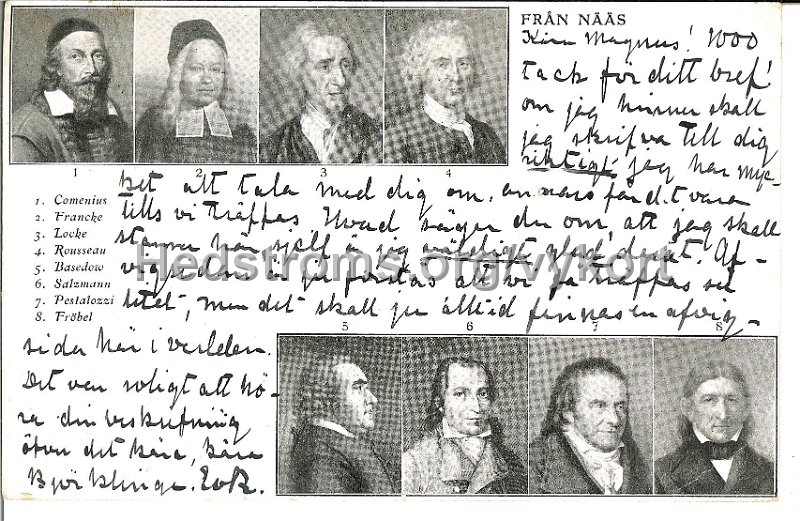 FRÅN NÄÄS
Kära Magnus! 1000
tack för ditt bref!
om jag hinner skall
jag skrifva till dig
riktigt jag har myc-
1 2 3 4
ket att tala med dig om, annars får det vara
tills vi träffas Hvad säger du om, att jag skall
stanna här själf är jag väldigt glad deråt. Af-
vigsidan är ju förstås att vi få träffas så
litet, men det skall ju alltid finnas en afvig-
1. Comenius
2. Francke
3. Locke
4. Rousseau
5. Basedow
6. Salzmann
7. Pestalozzi
8. Fröbel
Hedströms.org/vykort
5 6 7 8
sida här i verlden.
Det var roligt att hö-
ra din beskrifning
öfver det kära, kära
Björklinge. EvR.